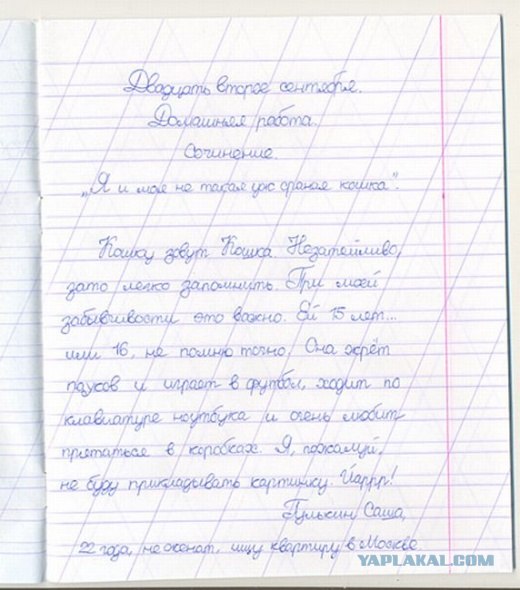 Двадцать второе сентября.
Домашняя работа.
Сочинение.
„Я и моя не такая уж сраная кошка".
Кошку зовут Кошка. Незатейливо,
зато легко запомнить. При моей
забывчивости это важно. Ей 15 лет...
или 16, не помню точно. Она жрёт
пауков и играет в футбол, ходит по
клавиатуре ноутбука и очень любит
прятаться в коробках. Я, пожалуй,
не буду прикладывать картинку. Йаррр!
Пулькин Саша,
22 года, не женат, ищу квартиру в Москве
YAPLAKAL.COM